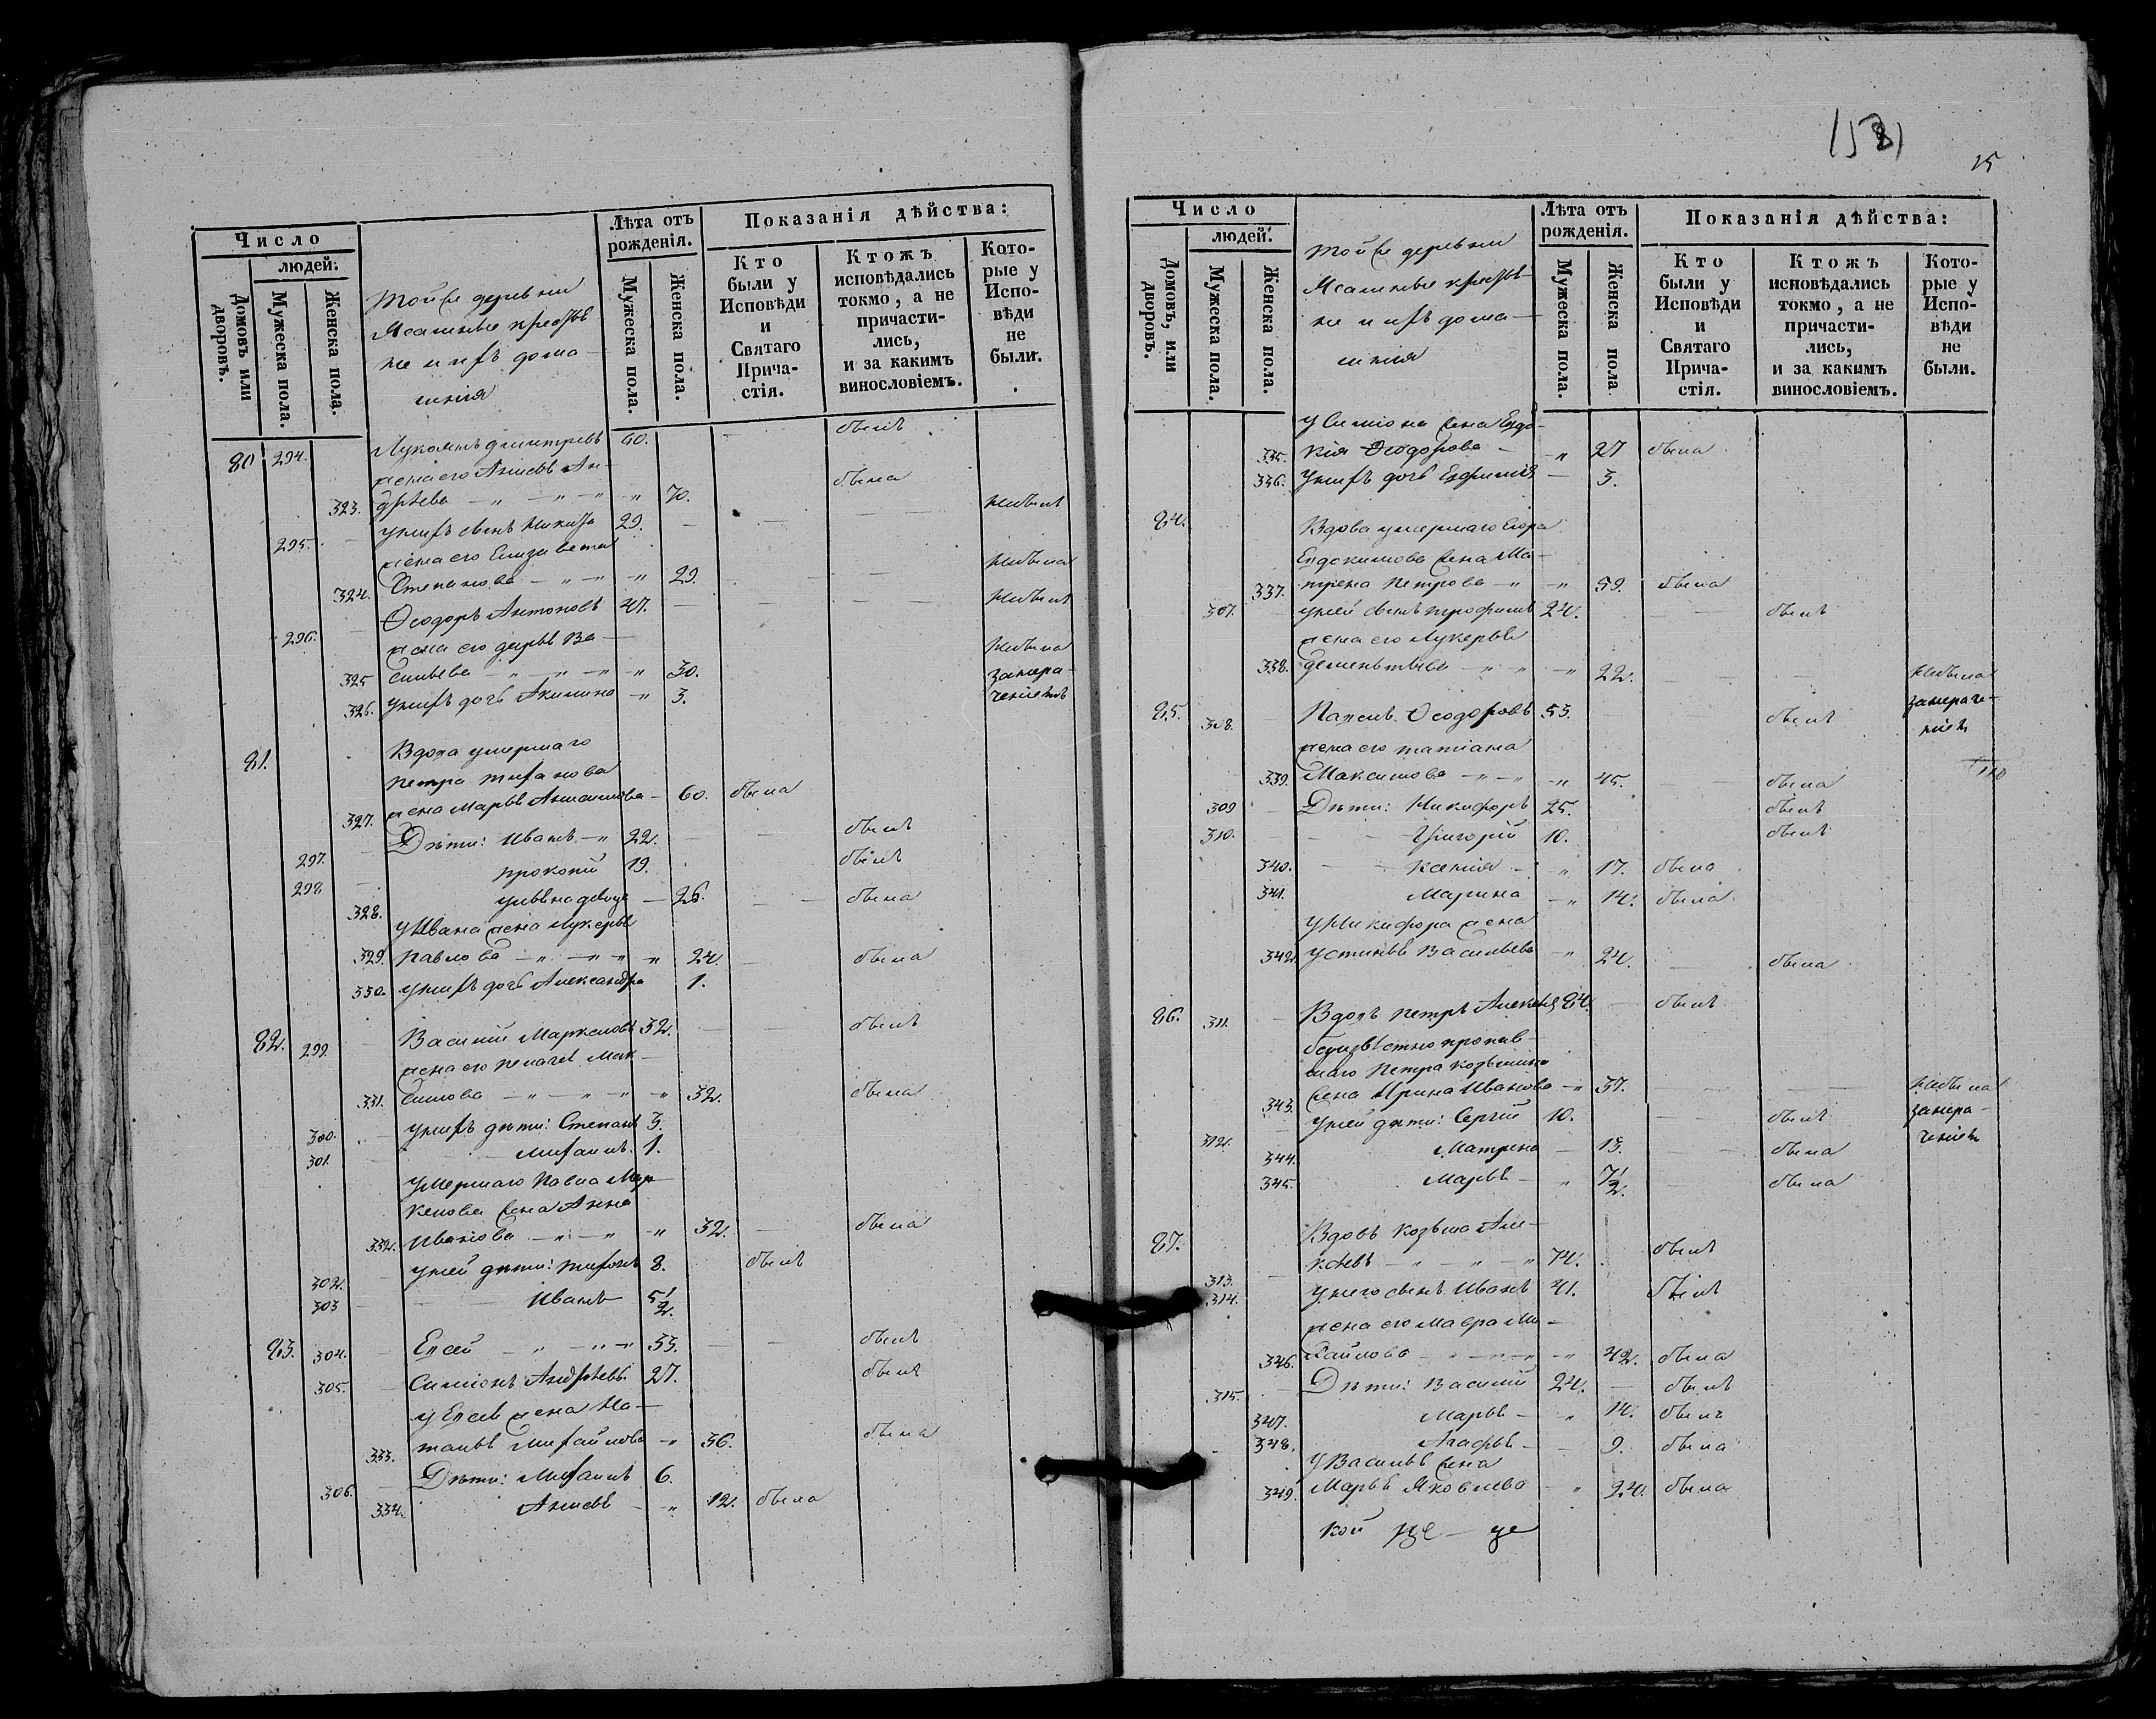 Число
людей.
Домовъ или дворовъ.
Мужеска пола.
Женска пола.
Той же деревни
Ясашные крестья
не и ихъ дома
шнія
Лѣта отъ рожденія.
Мужеска пола.
Женска пола.
Показанія дѣйства:
Кто были у Исповѣди и Святаго Прича-стія.
Ктожъ исповѣдались токмо, а не причасти-лись, и за какимъ винословіемъ.
Кото-рые у Испо-вѣди не были.
80 294. 60. былъ
жена его Ан-
323. дрѣева — " — " — " 70. была
295. у нихъ сынъ Никита 29. небылъ
жена его Елизавета
324. Степанова — " — " 29. небыла
296. Ѳеодоръ Антоновъ 47. небылъ
жена его Ва-
325 сильева — " — " — " 30. небыла
326. у нихъ дочь Акилина — " 3.
81. Вдова умершаго
Петра
327. жена Марья — 60. была
297. Дѣти: Иванъ — " 22. былъ
298. Прокопій 19. былъ
328. девица — 26. была
У Ивана жена Лукерья
329. Павлова — " — " — " 24. была
330. у нихъ дочь Александра 1.
82. 299. Василій Маркеловъ 32. былъ
жена его Пелагея Мак-
331. симова — " — " — " 32. была
300. у нихъ дѣти: Степанъ 3.
301. Михаилъ. 1.
Умершаго Павла Мар-
келова жена Анна
332. Иванова — " — " — " 32. была
302. у ней дѣти: Тихонъ 8. былъ
303 Иванъ 5 1/2.
83. 304. — " — " 53. былъ
305. Симіонъ Андрѣевъ. 27. былъ
жена На-
333. талья Михайлова — " 36. была
306. Дѣти: Михаилъ 6.
334. — " 12. была
15
Число
людей.
Домовъ, или дворовъ.
Мужеска пола.
Женска пола.
Той же деревни
Ясашные крестья-
не и ихъ дома-
шнія
Лѣта отъ рожденія.
Мужеска пола.
Женска пола
Показанія дѣйства:
Кто были у Исповѣди и Святаго Прича-стія.
Ктожъ исповѣдались токмо, а не причасти-лись, и за какимъ винословіемъ.
Кото-рые у Испо-вѣди не были.
У Симіона жена Евдо-
335. кія Ѳеодорова — " 27 была
336. У нихъ дочь Евфимія — 3.
84. Вдова умершаго
Евдокимова жена Ма-
337. трена Петрова — " — " 59. была
307. у ней сынъ Трофимъ 24. былъ
жена его Лукерья
338. — " — " — " 22. небыла
85. 308. Ѳеодоровъ 53. былъ
жена его Татіана
339. Максимова — " — " — " 45. была
309 Дѣти: Никифоръ 25. былъ
310. Григорій 10. былъ
340. — " 17. была
341. Марина — " 14. была
У Никифора жена
342. Устинья Васильева — " 24. была
86. 311. Вдовъ Петръ 84. былъ
безъизвѣстно пропав-
шаго Петра Козьмина
343. жена Ирина Иванова — " 37. небыла
312. у ней дѣти: Сергій 10. былъ
344. Матрена — 13. была
345. Марья — " 7 1/2. была
87. Вдовъ Козьма Але-
313. ксѣевъ — " — " — " 74. былъ
314. у него сынъ Иванъ 41. былъ
жена его Мавра Ми-
346. хайлова — " — " — " 42. была
315. Дѣти: Василій 24. былъ
347. Марья — " 14. была
348. Агафья — 9. была
У Василья жена
349. Марья Яковлева — " 24. была